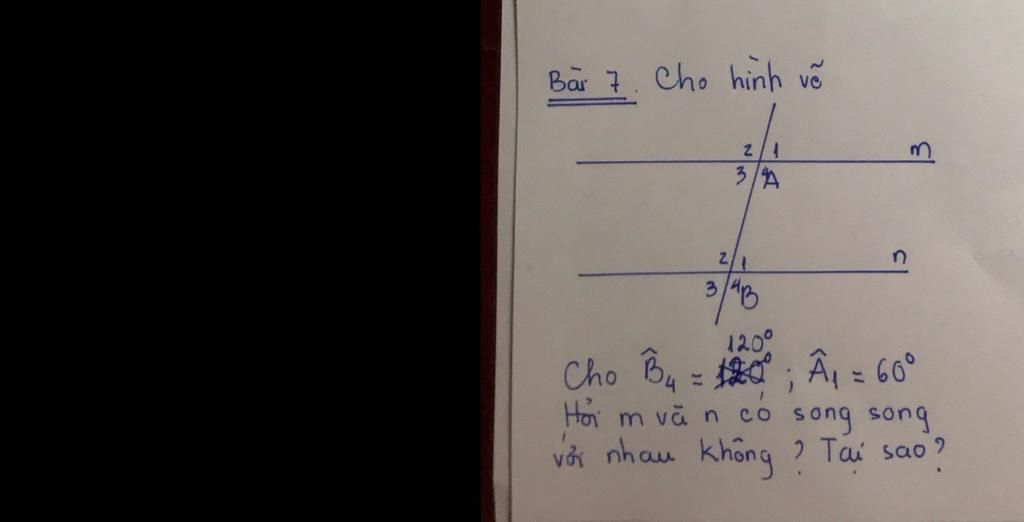 Bài 7. Cho hình vẽ
2 1 m
3 4 A
2 1 n
3 4 B
120°
Cho B̂₄ = 120° ; Â₁ = 60°
Hỏi m và n có song song
với nhau không ? Tại sao ?